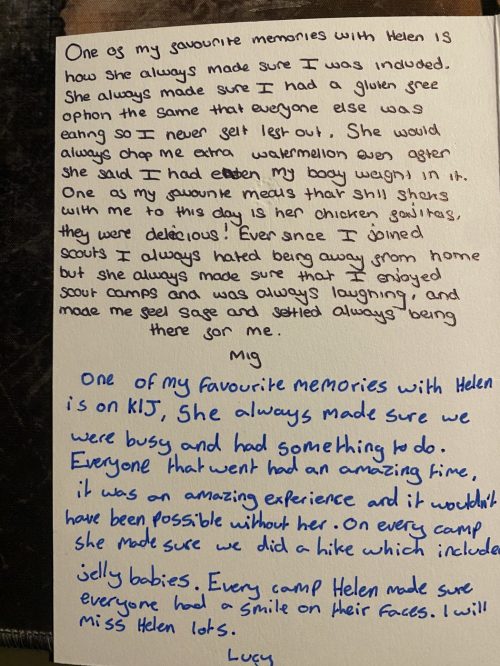 One of my favourite memories with Helen is
how she always made sure I was included.
She always made sure I had a gluten free
option the same that everyone else was
eating so I never felt left out. She would
always chop me extra watermellon even after
she said I had eaten my body weight in it.
One of my favourite meals that still sticks
with me to this day is her chicken fajitas,
they were delecious! Ever since I joined
scouts I always hated being away from home
but she always made sure that I enjoyed
scout camps and was always laughing, and
made me feel safe and settled always being
there for me.
Mig
One of my favourite memories with Helen
is on KIJ, She always made sure we
were busy and had something to do.
Everyone that went had an amazing time,
it was an amazing experience and it wouldn't
have been possible without her. On every camp
she made sure we did a hike which include
jelly babies. Every camp Helen made sure
everyone had a smile on their faces. I will
miss Helen lots.
Lucy